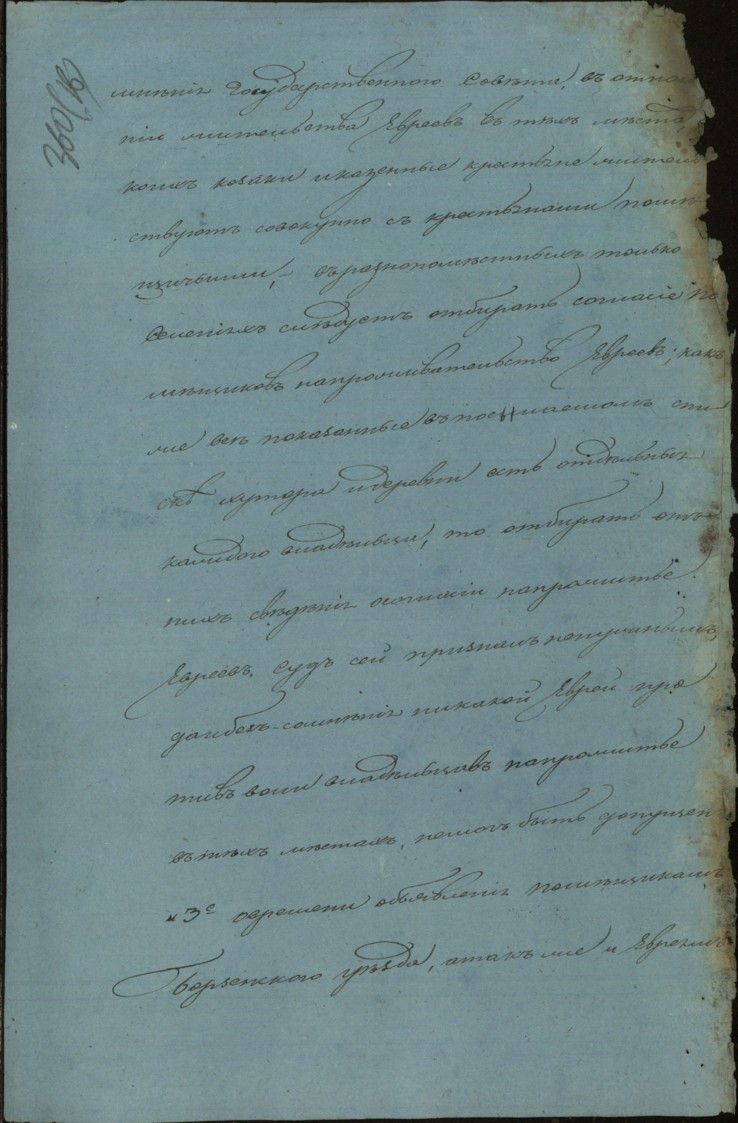 360(18)
мнѣнія Государственного Совѣта, въ отно
ніи жительства Евреевъ въ тѣхъ мѣста
коихъ козаки иказенные крестьяне жител
ствуютъ совокупно съ крестьянами помѣ
щичьими, – въразнопомѣстныхъ только
Селеніяхъ слѣдуетъ отбирать согласіе по
мѣщиковъ напроживательство Евреевъ; какъ
же всѣ показанные въ спи
скѣ хутора идеревни есть отдѣльныя
каждого владѣльца, то отбирать отъ
нихъ свѣдѣнія напрожитье
Евреевъ, Судъ сей призналъ ненужнымъ,
да ибезъ сомнѣнія никакой Еврей про
тивъ воли владѣльцовъ напрожитье
въ тѣхъ мѣстахъ, немогъ быть допущен
и 3е овремени объявленія помѣщикамъ
Борзенского уѣзда, атакъ же и Евреямъ